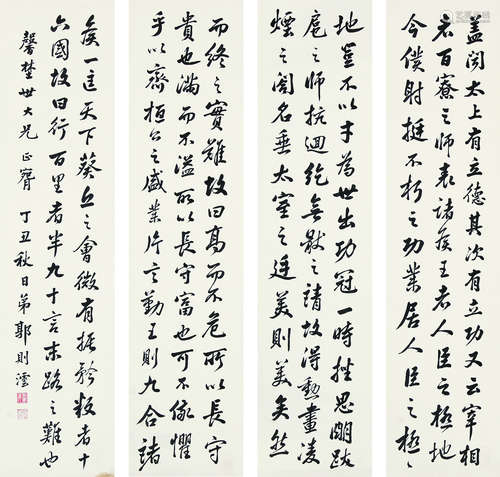 蓋聞太上有立德其次有立功又云宰相
者百寮之師表諸侯王者人臣之極地
今僕射挺不朽之功業居人臣之極々
地豈不以才為世出功冠一時挫思明跋
扈之師抗迴紇無猒之請故得勳畫凌
煙之閣名垂太室之廷美則美矣然
而終之實難故曰高而不危所以長守
貴也滿而不溢所以長守富也可不儆懼
乎以齊桓公之盛業片言勤王則九合諸
侯一匡天下葵丘之會微有振矜叛者十
六國故曰行百里者半九十言末路之難也
馨埜世大兄正 丁丑秋日弟郭則澐